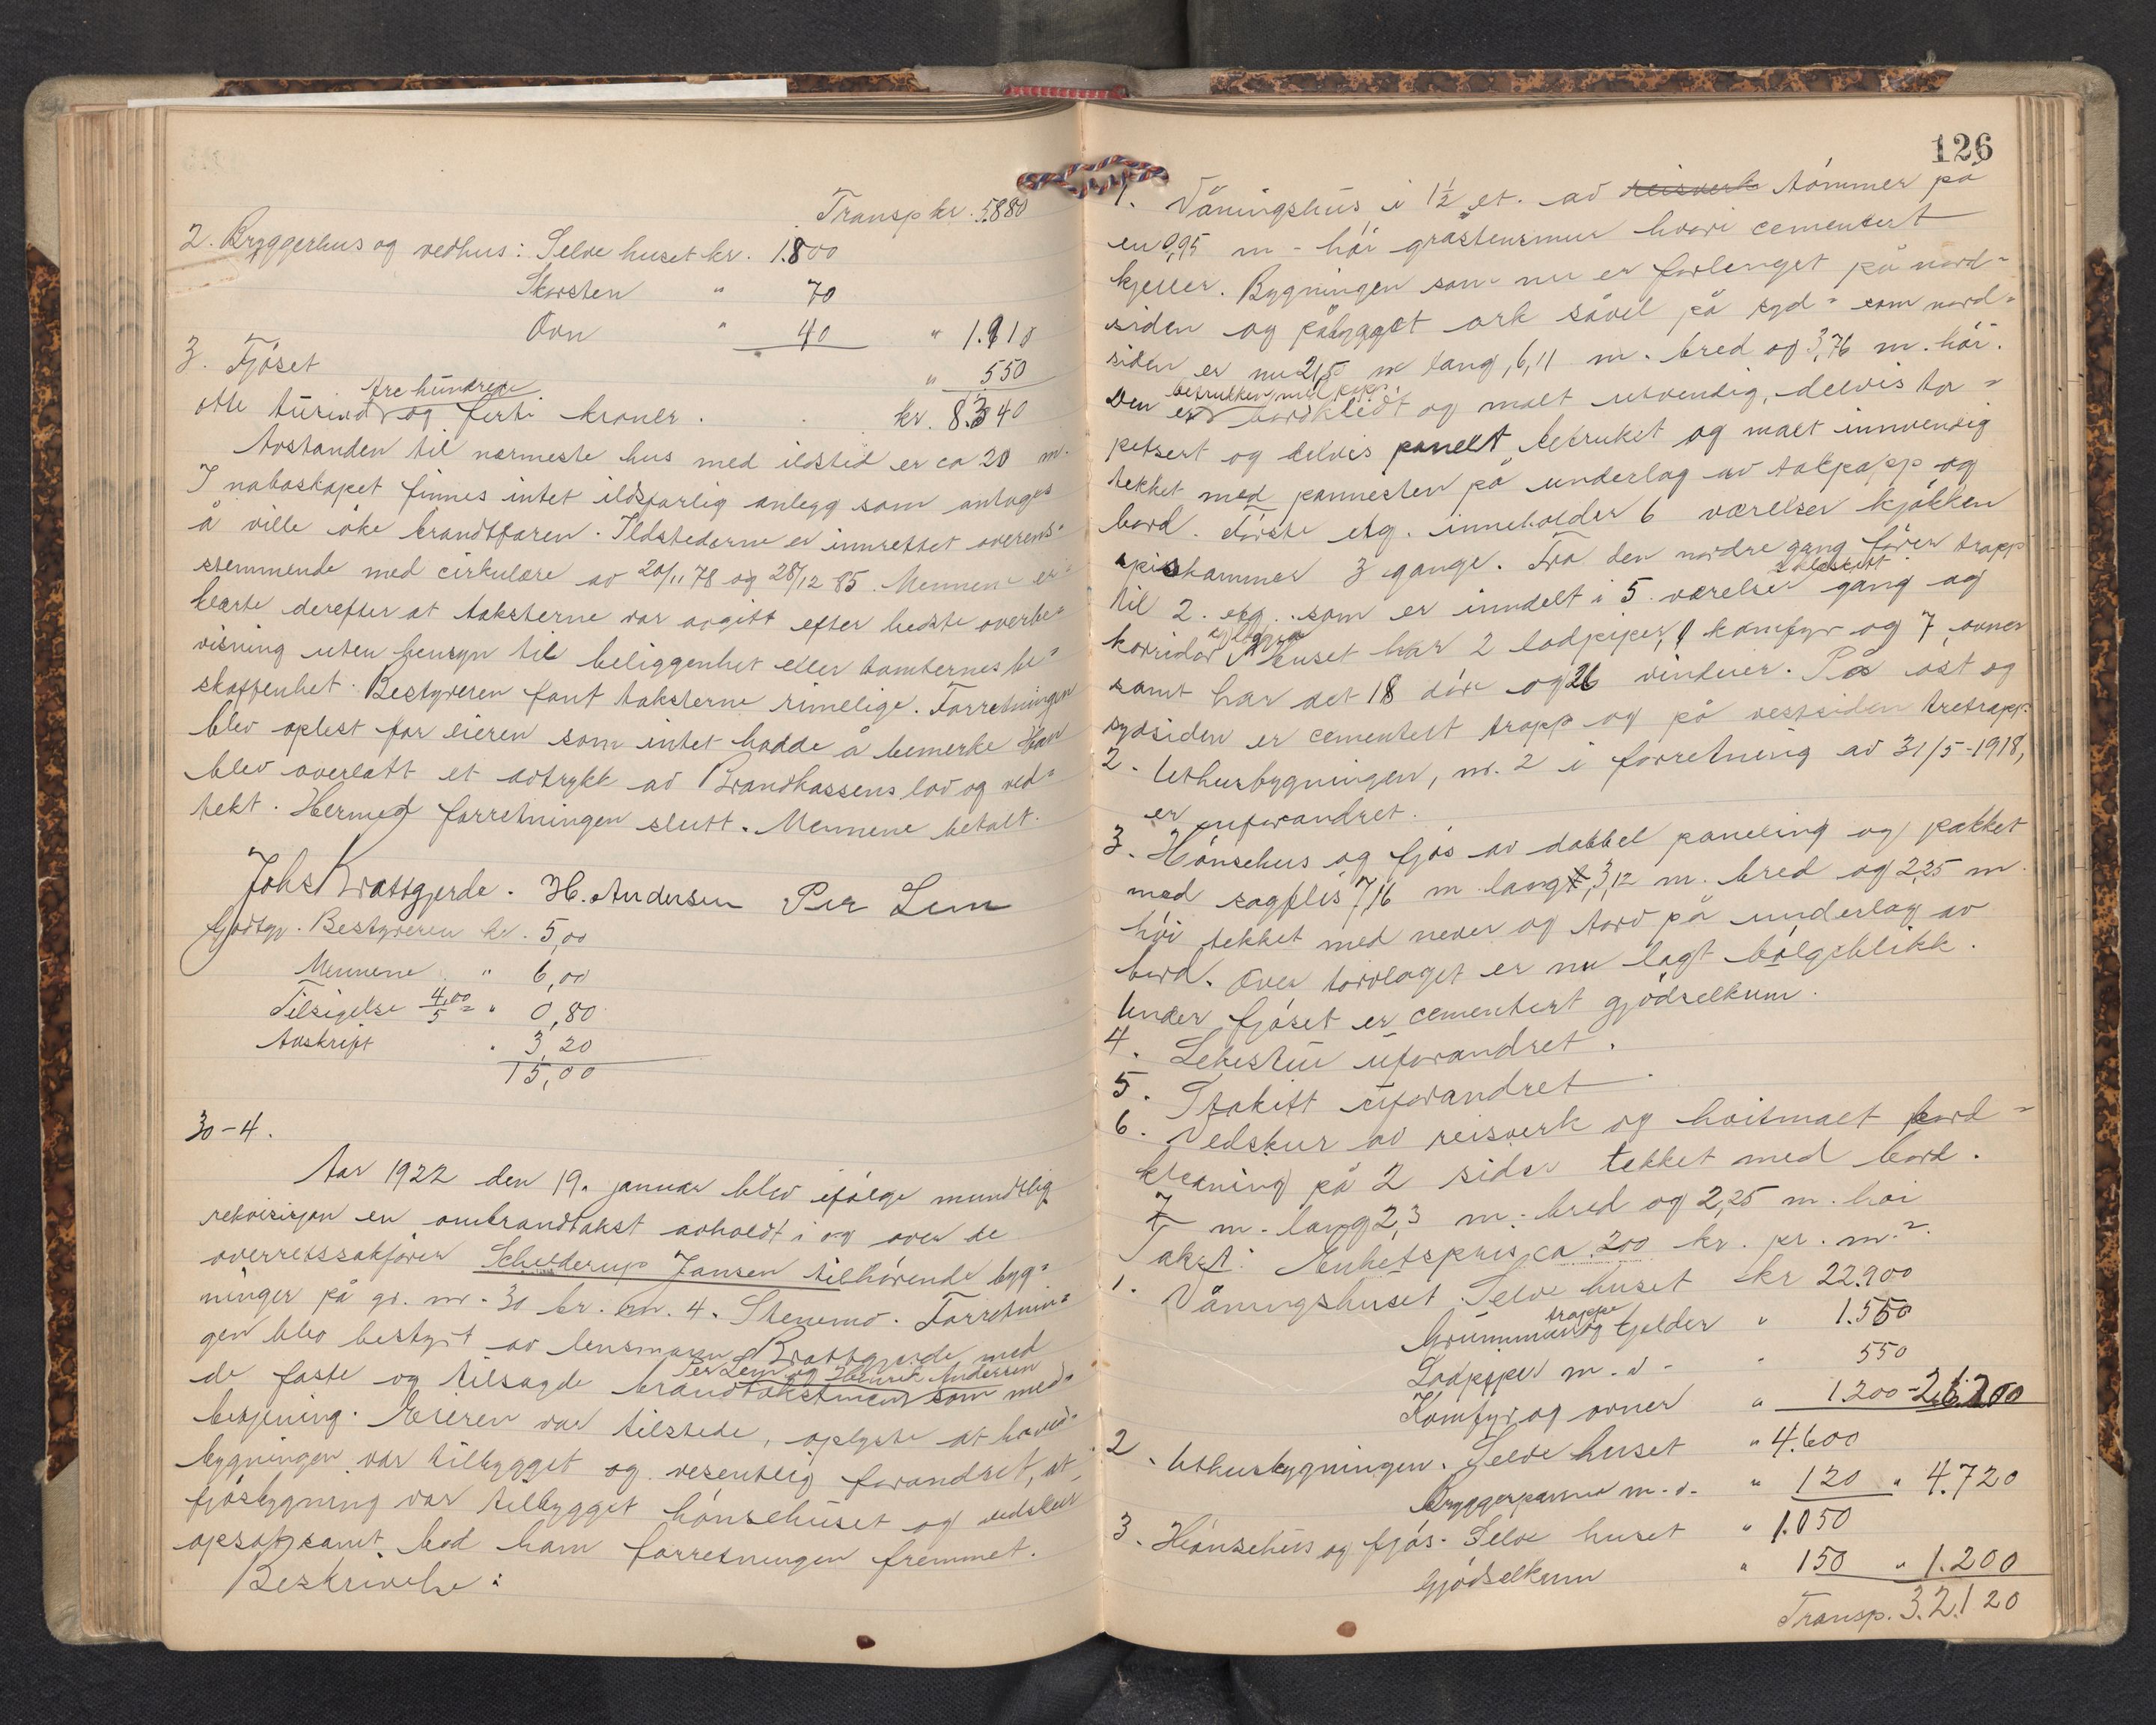 Transp kr. 5.880
2. Bryggerhus og vedhus: Selve huset kr. 1.800
Skorsten " 70
Ovn " 40 " 1.910
3. Fjöset " 550
otte tusind tre hundrede og førti kroner. kr. 8.340
Avstanden til nærmeste hus med ildsted er ca 20 m.
I naboskapet finnes intet ildsfarlig anlegg som antages
å ville öke brandtfaren. Ildstederne er innrettet overens=
stemmende med cirkulære av 20/11 78 og 28/12 85. Mennene er=
klærte derefter at taksterne var avgitt efter bedste overbe=
visning uten hensyn til beliggenhet eller tomternes be=
skaffenhet. Bestyreren fant taksterne rimelige. Forretningen
blev oplest for eieren som intet hadde å bemerke Han
blev overlatt et avtrykk av Brandkassens lov og ved=
tekt. Hermed forretningen slutt. Mennene betalt.
Johs Brattgjerde. H. Andersen Per Lem
Godtgj. Bestyreren kr. 5,00
Mennene " 6,00
Tilsigelse 4,00/5 = " 0,80
Avskrift " 3,20
15,00
30-4.
Aar 1922 den 19. januar blev ifölge mundtlig
rekvisisjon en ombrandtakst avholdt i og over de
overretssakförer Schelderup Jansen tilhörende byg=
ninger på gr. nr. 30 br. nr. 4. Stenemo. Forretnin=
gen blev bestyrt av lensmann Brattgjerde med
de faste og tilsagde brandtakstmenn Per Lem og Henrik Andersen som med=
betjening. Eieren var tilstede, oplyste at hoved=
bygningen var tilbygget og vesentlig forandret, at
fjösbygning var tilbygget hönsehuset og vedskur
opsatt samt bad ham forretningen fremmet.
Beskrivelse:
126
1. Våningshus i 1½ et. av reisverk tömmer på
en 0,95 m - höi gråstensmur hvori cementert
kjeller. Bygningen som nu er forlenget på nord=
siden og påbygget ark såvel på syd= som nord=
siden er nu 21,5 m lang, 6,11 m. bred og 3,76 m. höi.
Den er betrukken med papp, bordklædt og malt utvendig, delvis ta=
petsert og delvis panelt, betruket og malt innvendig
tekket med pannesten på underlag av takpapp og
bord. Förste etg. inneholder 6 værelser kjökken
spiskammer 3 gange. Fra den nordre gang förer trapp
til 2. etg. som er inndelt i 5 værelser gang og
korridor. Huset har 2 lodpiper, 1 komfyr og 7 ovner
samt har det 18 döre og 26 vinduer. På öst og
sydsiden er cementert trapp og på vestsiden tretrapp.
2. Uthusbygningen, nr. 2 i forretning av 31/5-1918,
er uforandret.
3. Hönsehus og fjös av dobbel paneling og pakket
med sagflis 7,16 m lang, 3,12 m. bred og 2,25 m.
höi tekket med never og torv på underlag av
bord. Over torvlaget er nu lagt bölgeblikk.
Under fjöset er cementert gjödselkum.
4. Lekestue uforandret.
5. Stakitt uforandret.
6. Vedskur av reisverk og hvitmalt bord=
klædning på 2 sider tekket med bord.
7 m. lang 2,3 m. bred og 2,25 m. höi
Takst: Enhetspris ca 200 kr. pr. m.².
1. Våningshuset. Selve huset kr 22.900
Grunnmur trappe og kjelder " 1.550
Lodpiper m. v. " 550
Komfyr og ovner " 1.200 - 26.200
2. Uthusbygningen. Selve huset " 4.600
Bryggerpanne m. v. " 120 " 4.720
3. Hönsehus og fjös. Selve huset " 1.050
Gjödselkum " 150 " 1.200
Transp. 32.120